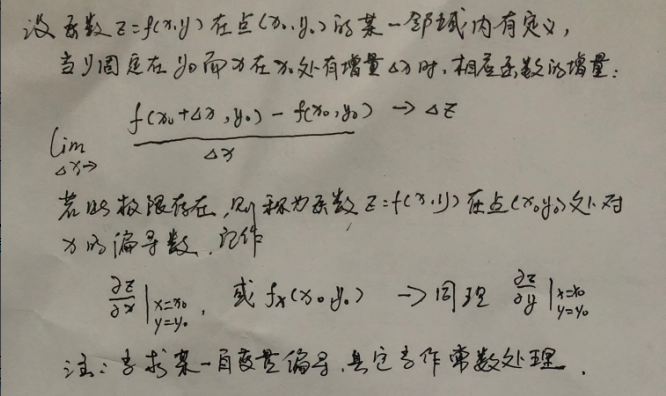 设函数 z=f(x,y) 在点(x₀,y₀)的某一邻域内有定义,
当y固定在y₀而x在x₀处有增量Δx时,相应函数的增量:
lim Δx→ f(x₀+Δx,y₀)-f(x₀,y₀) / Δx → Δz
若此极限存在,则称为函数 z=f(x,y) 在点(x₀,y₀)处对
x的偏导数,记作
∂z/∂x | x=x₀ y=y₀, 或 fx(x₀,y₀) → 同理 ∂z/∂y | x=x₀ y=y₀
注:求某一自变量偏导,其它作常数处理.